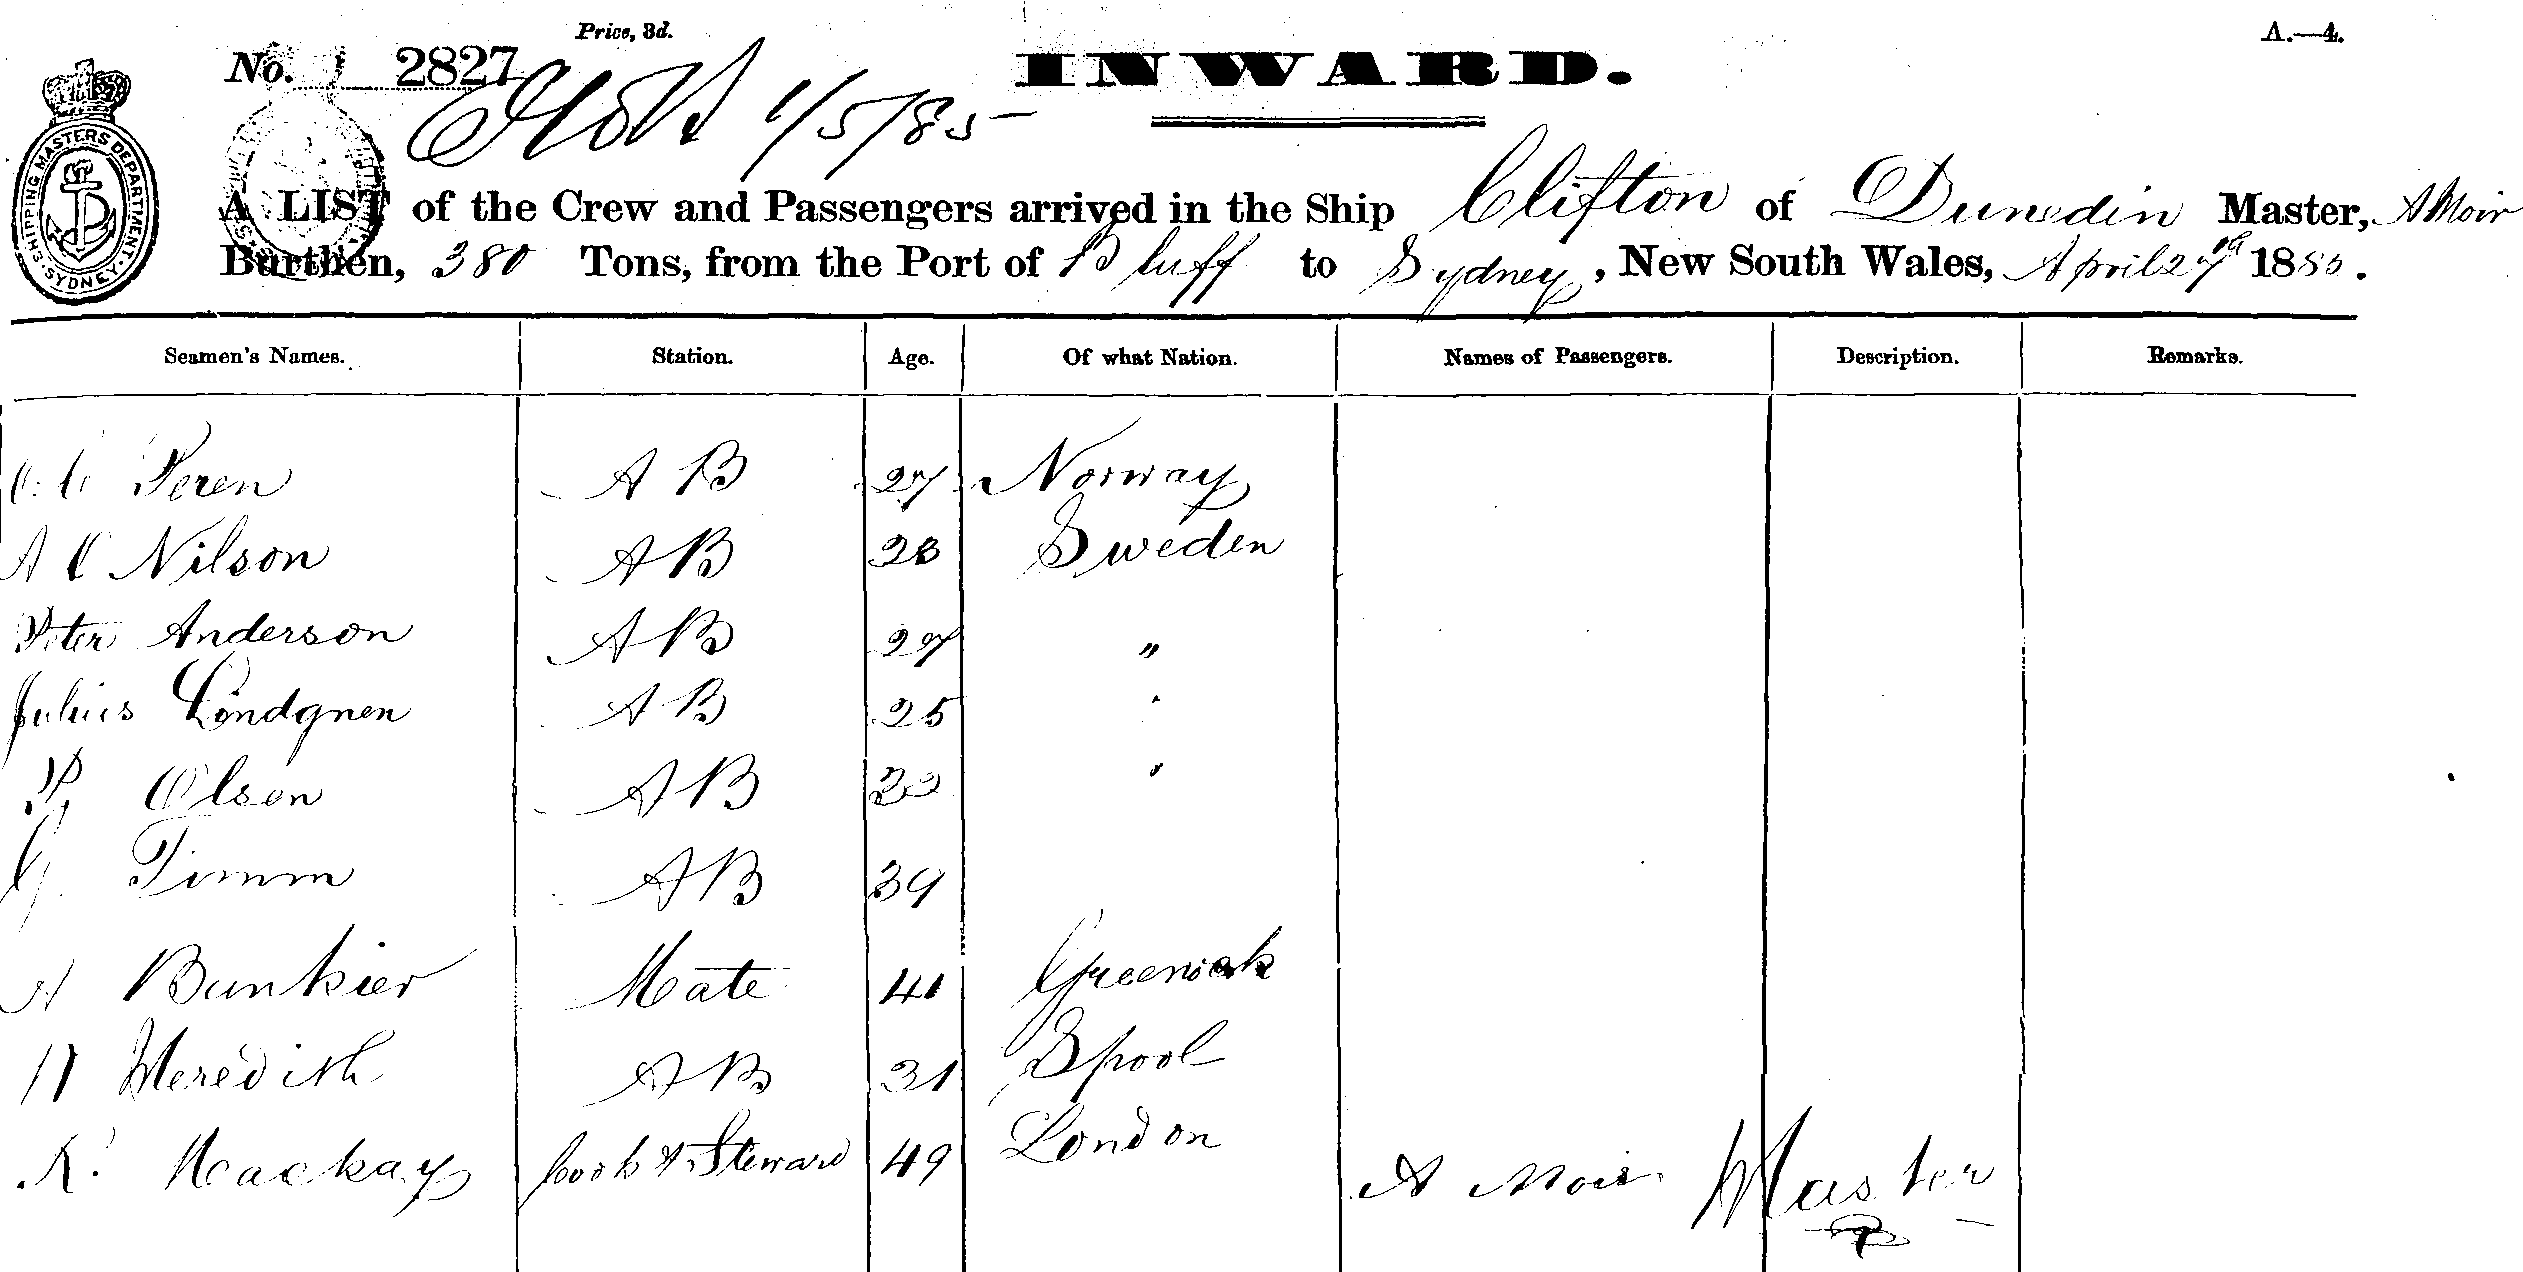 Price, 3d.
A.—4.
No. 2827
INWARD.
1/5/85
SHIPPING MASTERS DEPARTMENT. SYDNEY.
A LIST of the Crew and Passengers arrived in the Ship Clifton of Dunedin Master, A Moir
Burthen, 380 Tons, from the Port of Bluff to Sydney, New South Wales, April 27th 1885.
Seamen's Names. Station. Age. Of what Nation. Names of Passengers. Description. Remarks.
Peren A B 27 Norway
A C Nilson A B 28 Sweden
Peter Anderson A B 27 "
Julius Lindgnen A B 25 "
P Olsen A B "
G. Timm A B 39
A Bunkier Mate 41 Greenock
H Meredith A B 31 Lpool
K. Mackay Cook & Steward 49 London
A Moir Master